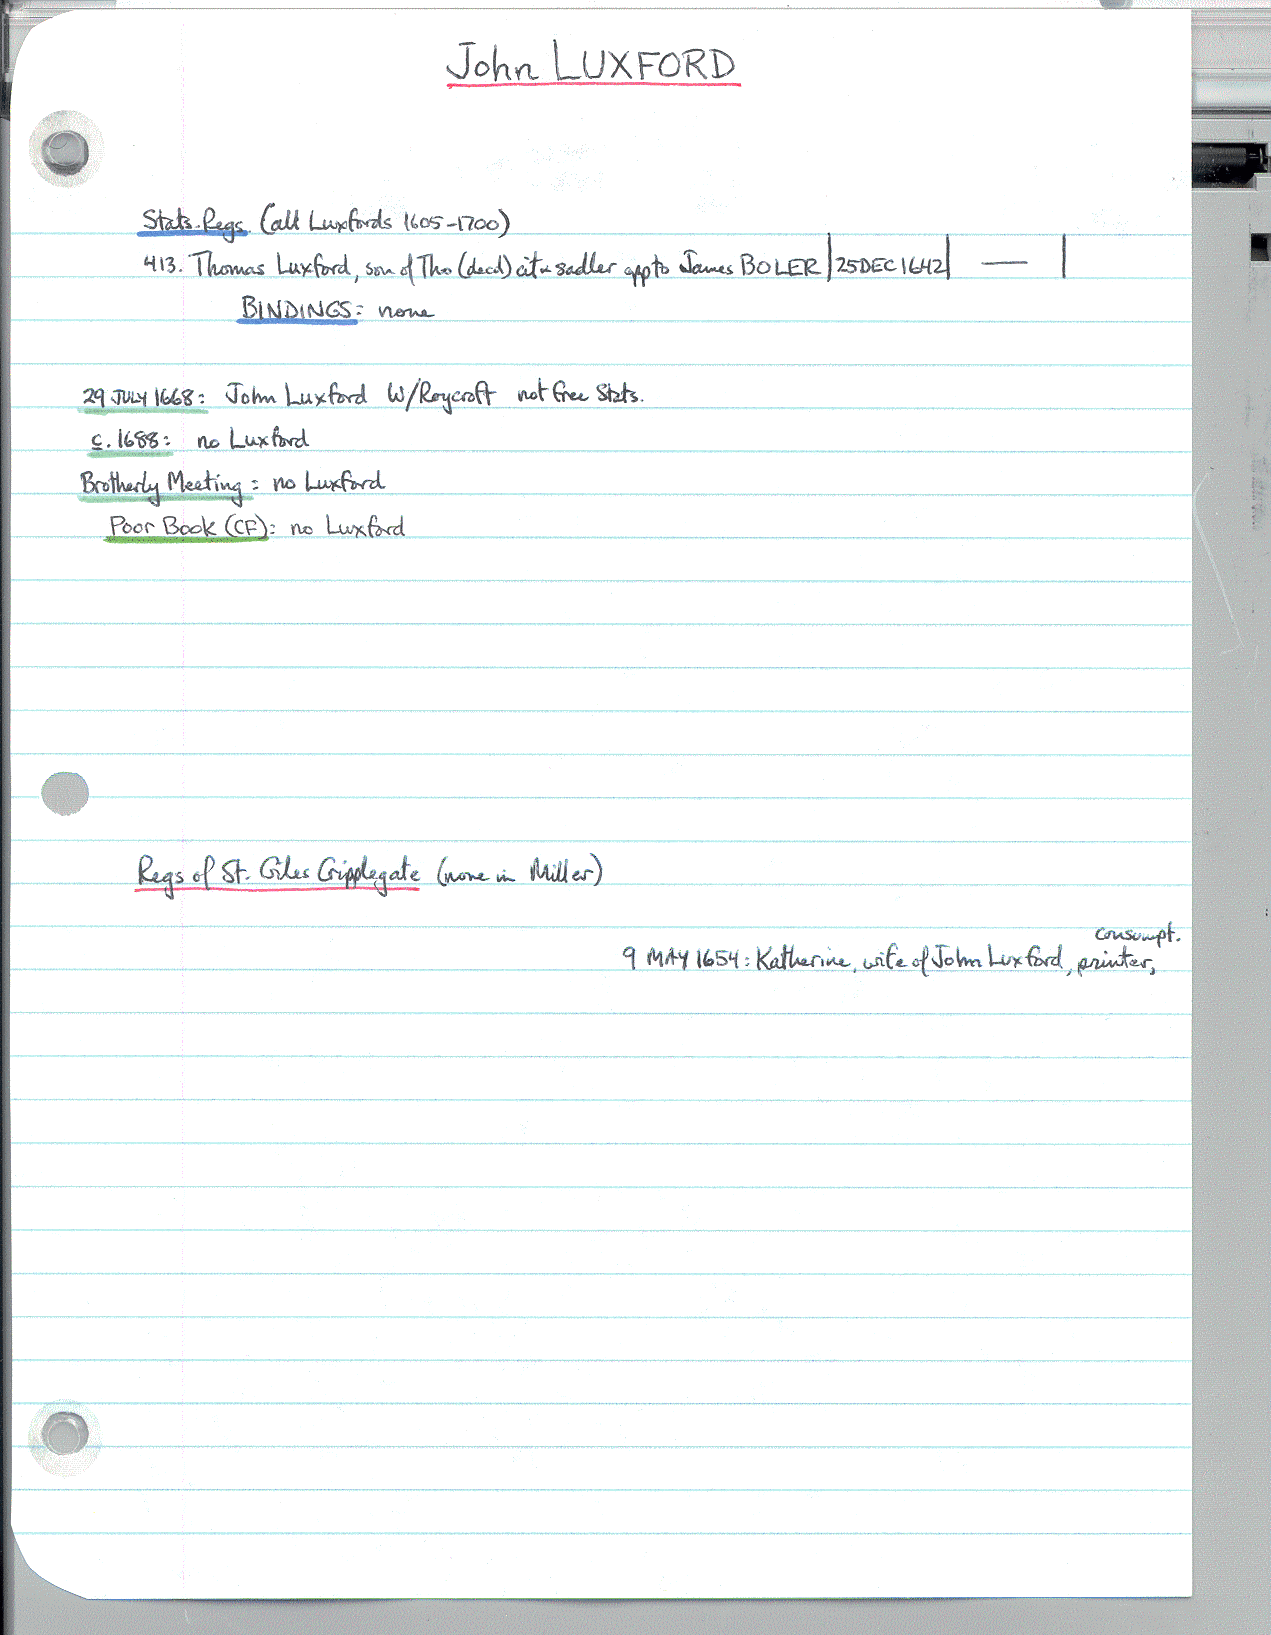 John LUXFORD
Stats. Regs. (all Luxfords 1605-1700)
413. Thomas Luxford, son of Tho (decd) cit & sadler app to James BOLER | 25 DEC 1642 | — |
BINDINGS: none
29 JULY 1668: John Luxford W/Roycroft not free Stats.
c. 1688: no Luxford
Brotherly Meeting: no Luxford
Poor Book (CF): no Luxford
Regs of St. Giles Cripplegate (none in Miller)
consumpt.
9 MAY 1654: Katherine, wife of John Luxford, printer,